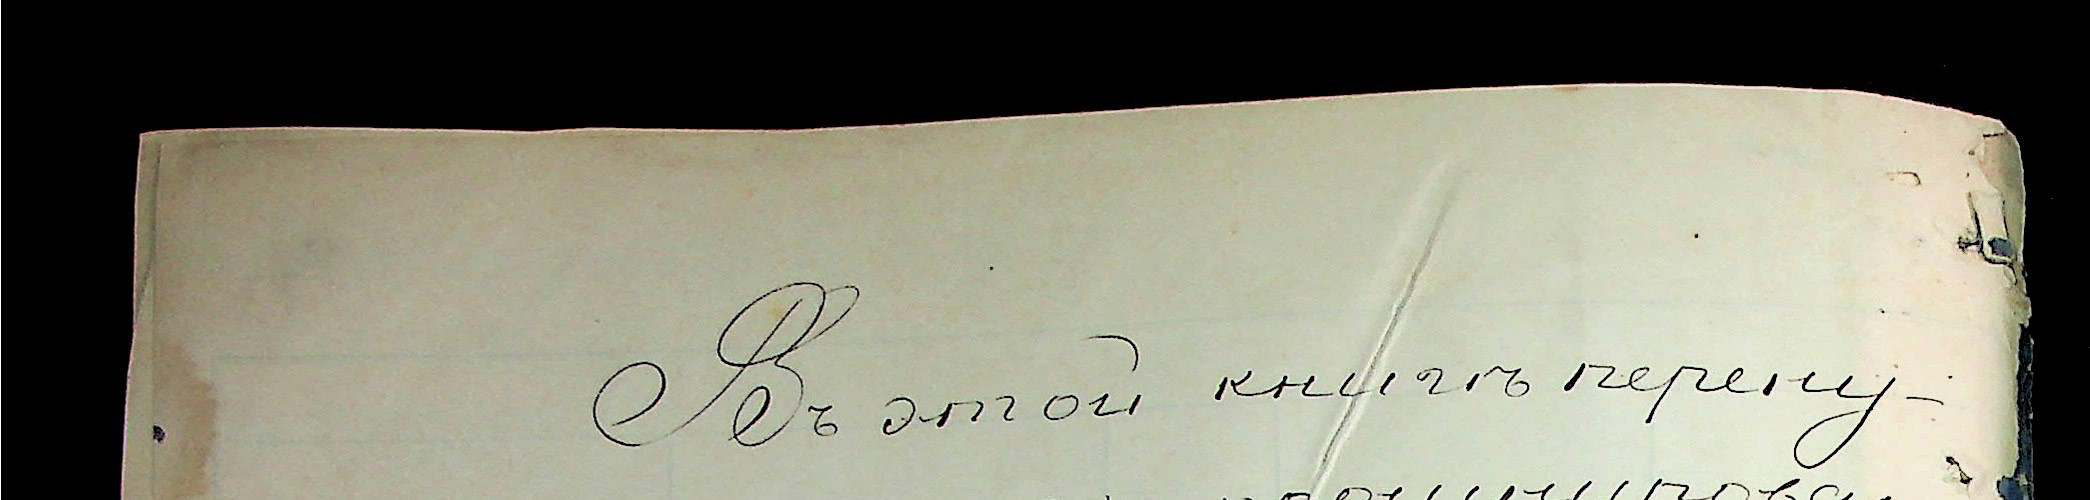 Въ этой книгѣ перену-